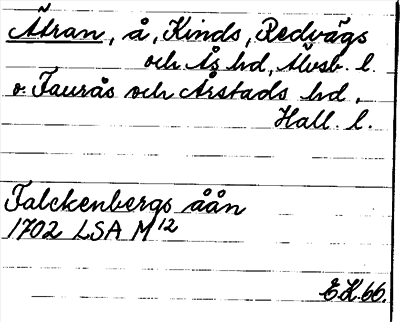 Ätran, å, Kinds, Redvägs
och Ås hd, Älvsb. l.
o. Faurås och Årstads hd,
Hall. l.
Falckenbergs åån
1702 LSA M 12
E.K. 66.